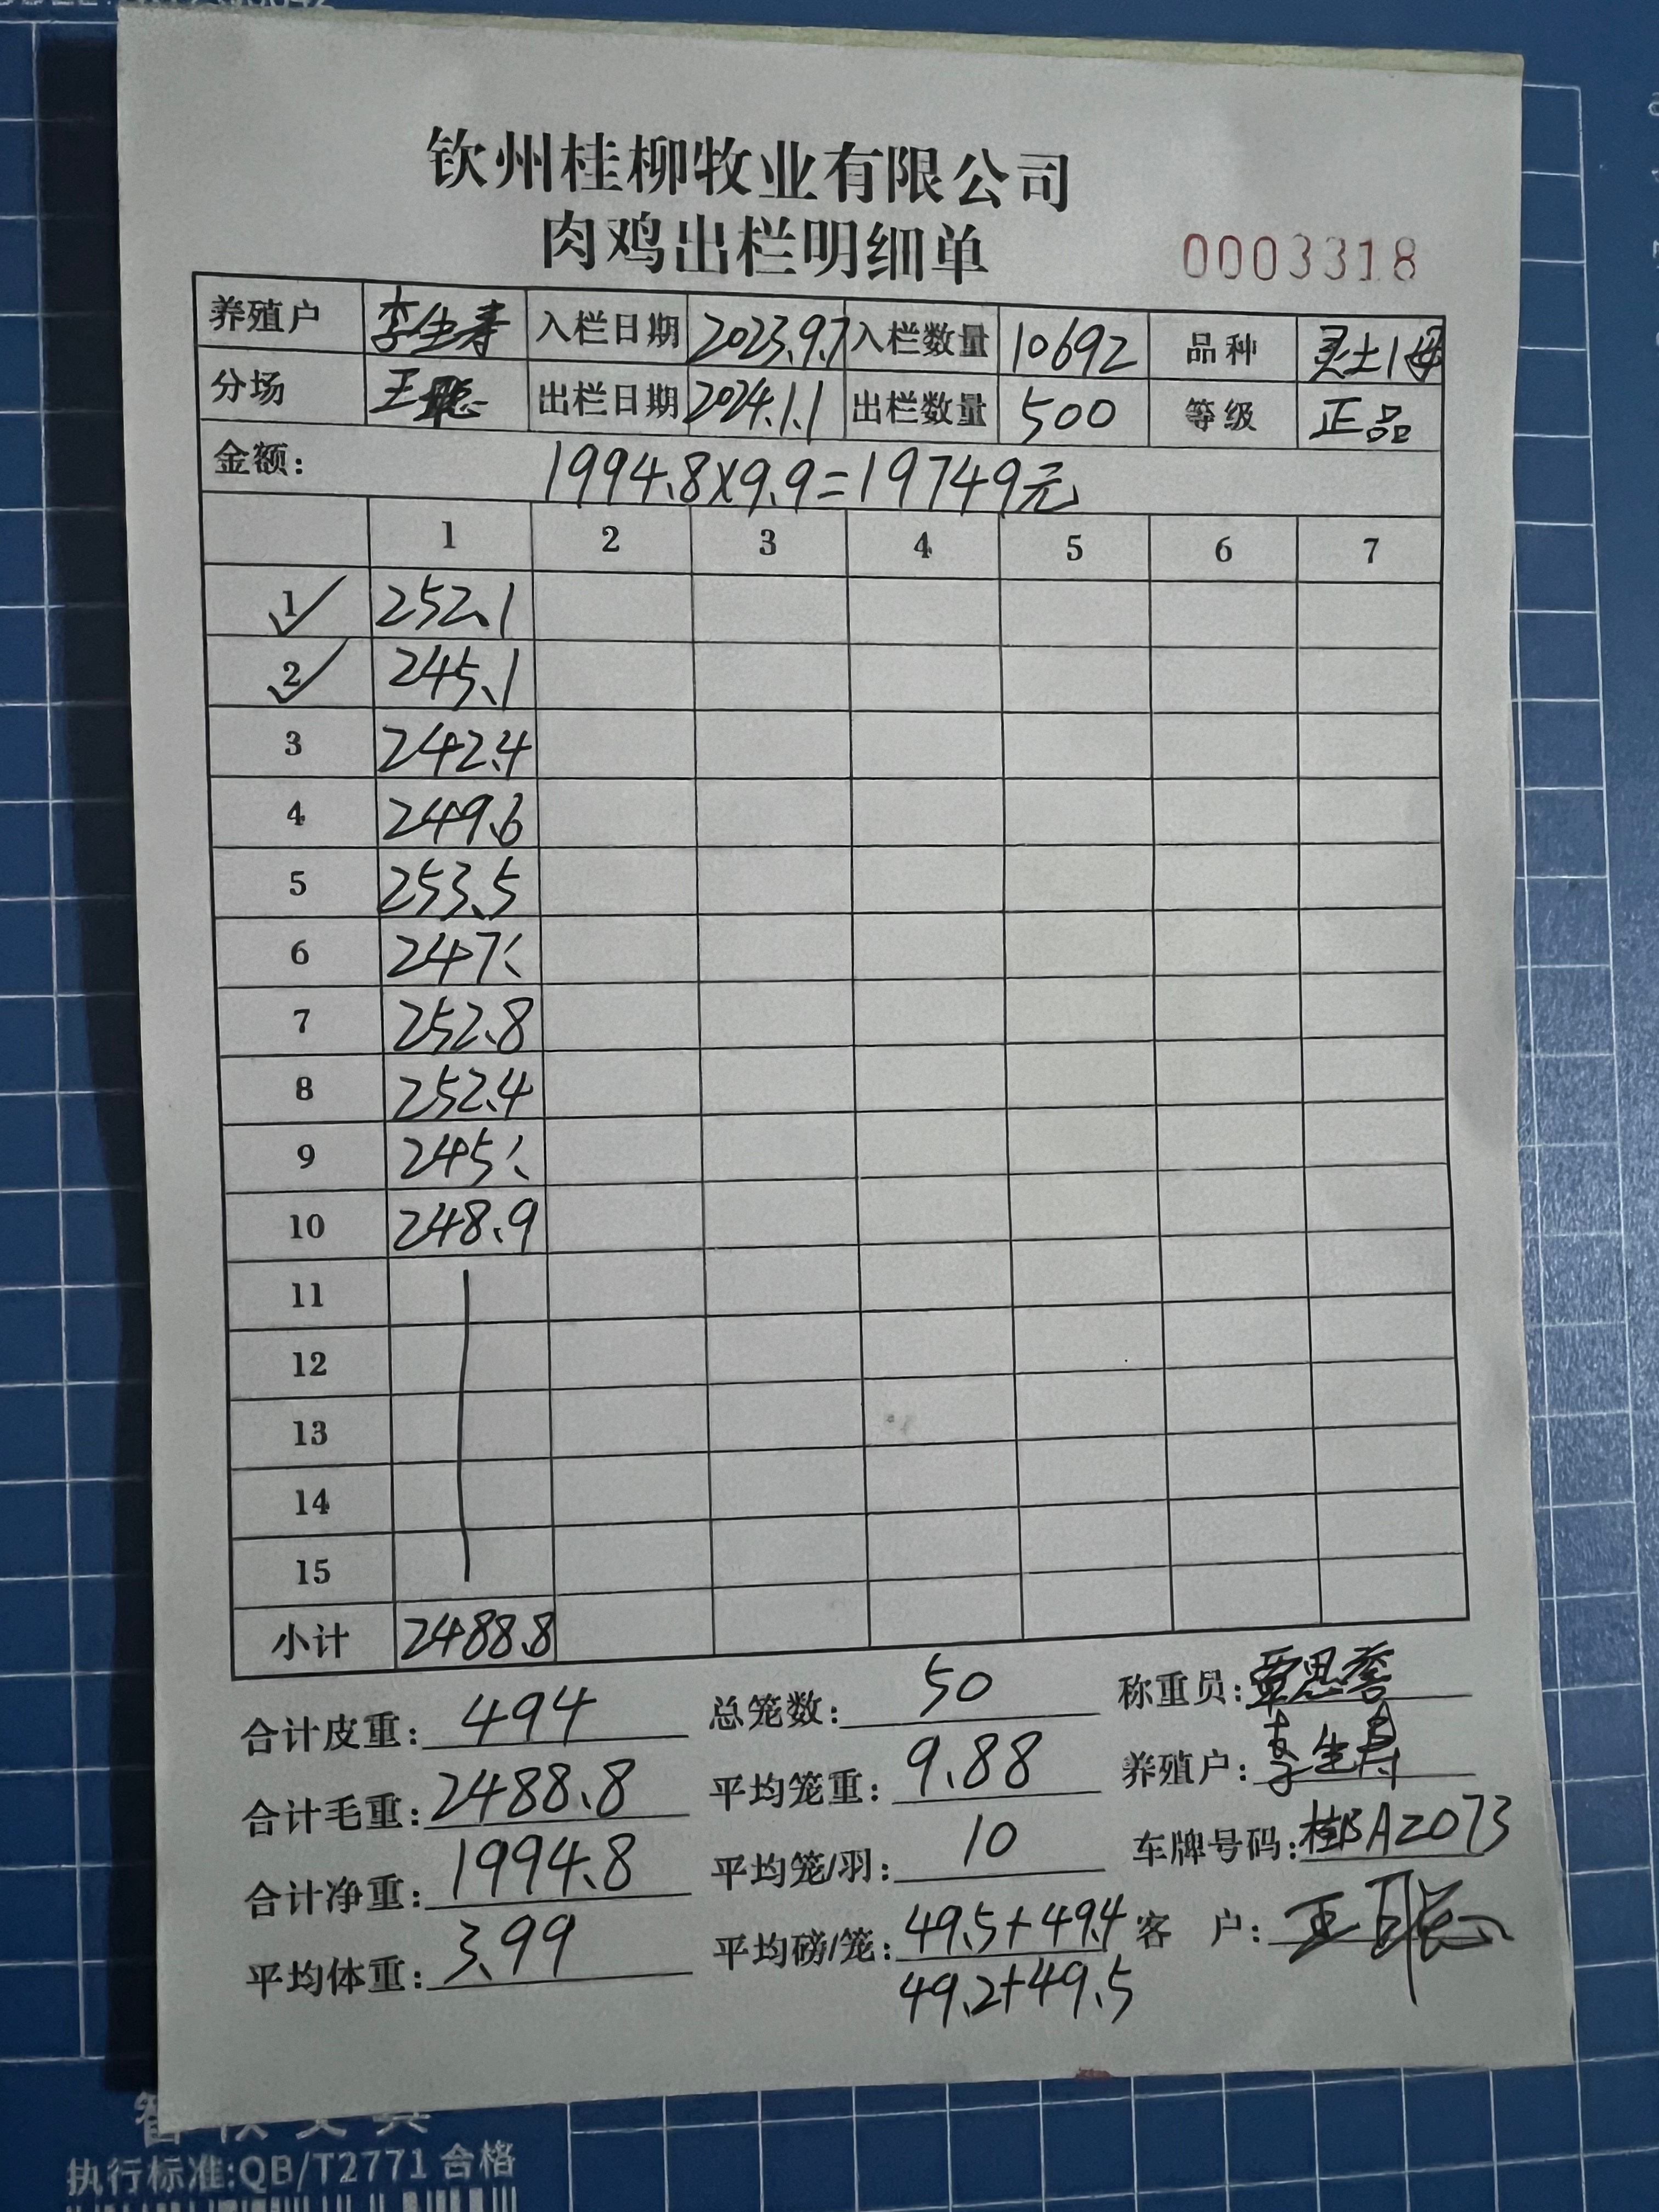 钦州桂柳牧业有限公司
肉鸡出栏明细单 0003318
养殖户 李生寿 入栏日期 2023.9.7 入栏数量 10692 品种 灵土1母
分场 王聪 出栏日期 2024.1.1 出栏数量 500 等级 正品
金额: 1994.8×9.9=19749元
1 2 3 4 5 6 7
1 252.1
2 245.1
3 242.4
4 249.6
5 253.5
6 247.
7 252.8
8 252.4
9 245.
10 248.9
11
12
13
14
15
小计 2488.8
合计皮重: 494 总笼数: 50 称重员: 覃思
合计毛重: 2488.8 平均笼重: 9.88 养殖户: 李生寿
合计净重: 1994.8 平均笼/羽: 10 车牌号码: 桂A2073
平均体重: 3.99 平均磅/笼: 49.5+49.4 客户: 王聪
49.2+49.5
执行标准:QB/T2771 合格